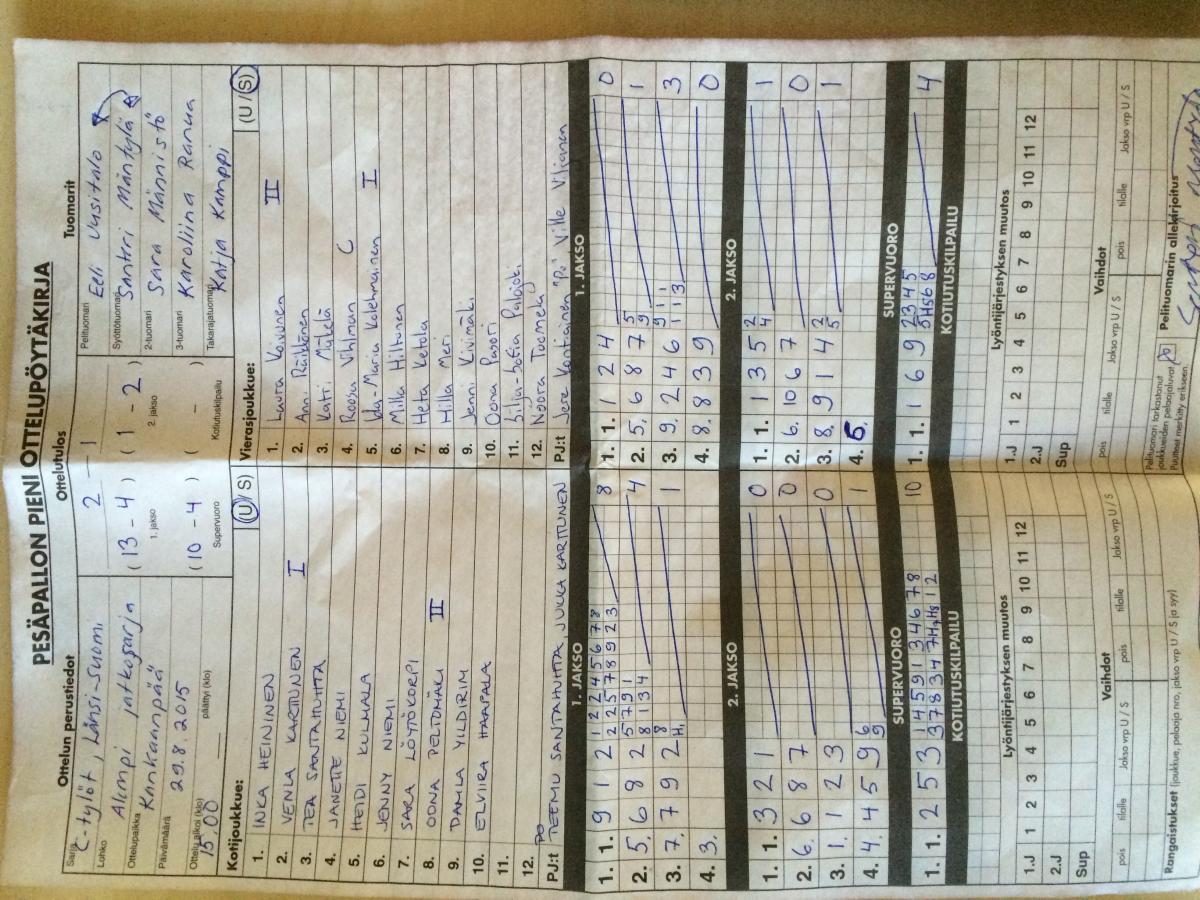 PESÄPALLON PIENI OTTELUPÖYTÄKIRJA
Ottelun perustiedot
Sarja C-tytöt, Länsi-Suomi
Lohko Alempi jatkosarja
Ottelupaikka Kankaanpää
Päivämäärä 29.8.2015
Ottelu alkoi (klo) 15.00 päättyi (klo)
Ottelutulos
2 - 1
( 13 - 4 ) ( 1 - 2 )
1. jakso 2. jakso
( 10 - 4 ) ( - )
Supervuoro Kotiutuskilpailu
Tuomarit
Pelituomari Eeli Uusitalo
Syöttötuomari Santtri Mäntylä
2-tuomari Sara Männistö
3-tuomari Karoliina Ranua
Takarajatuomari Katja Kamppi
Kotijoukkue: (U / S)
1. INKA HEININEN
2. VENLA KARTTUNEN I
3. TEA SANTAHUHTA
4. JANETTE NIEMI
5. HEIDI KULMALA
6. JENNY NIEMI
7. SARA LÖYTÖKORPI
8. OONA PELTOMÄKI II
9. DAMLA YILDIRIM
10. ELVIIRA HAAPALA
11.
12.
PJ:t PO TEEMU SANTAHUHTA, JUKKA KARTTUNEN
Vierasjoukkue: (U / S)
1. Laura Koivunen II
2. Anni Räikkönen
3. Kati Mäkelä
4. Roosa Vihlman C
5. Ida-Maria Kolehmainen I
6. Milla Hiltunen
7. Heta Ketola
8. Hilla Meri
9. Jenni Kivimäki
10. Oona Pusori
11. Silja-Sofia Palojoki
12. Noora Tuomela
PJ:t Jere Kontiainen "PO" Ville Viljanen
1. JAKSO
1. 1. 9 1 2 1 2 2 4 5 6 7 8 8
2 2 5 7 8 9 2 3
2. 5. 6 8 2 5 7 9 1 4
8 1 3 4
3. 7. 7 9 2 8 1
H1
4. 3.
2. JAKSO
1. 1. 3 2 1 0
2. 6. 6 8 7 0
3. 1. 1 2 3 0
4. 4. 4 5 9 6 1
9
SUPERVUORO
1. 1. 2 5 3 1 4 5 9 1 3 4 6 7 8 10
3 7 8 3 4 7 H4 H8 1 2
KOTIUTUSKILPAILU
1. JAKSO
1. 1. 1 2 4 0
2. 5. 6 8 7 5 1
9
3. 9. 2 4 6 9 1 1 3
1 1 3
4. 8. 8 3 9 0
2. JAKSO
1. 1. 1 3 5 2 1
4
2. 6. 10 6 7 0
3. 8. 9 1 4 2 1
5
4. 5.
SUPERVUORO
1. 1. 1 6 9 2 3 4 5 4
5 H5 6 8
KOTIUTUSKILPAILU
Lyöntijärjestyksen muutos
1.J 1 2 3 4 5 6 7 8 9 10 11 12
2.J
Sup
Vaihdot
pois tilalle Jakso vrp U / S pois tilalle Jakso vrp U / S
Rangaistukset (joukkue, pelaaja nro, jakso vrp U / S ja syy)
Lyöntijärjestyksen muutos
1.J 1 2 3 4 5 6 7 8 9 10 11 12
2.J
Sup
Vaihdot
pois tilalle Jakso vrp U / S pois tilalle Jakso vrp U / S
Pelituomari tarkastanut
joukkueiden pelaajaluvat
Puutteet merkitty erikseen.
Pelituomarin allekirjoitus